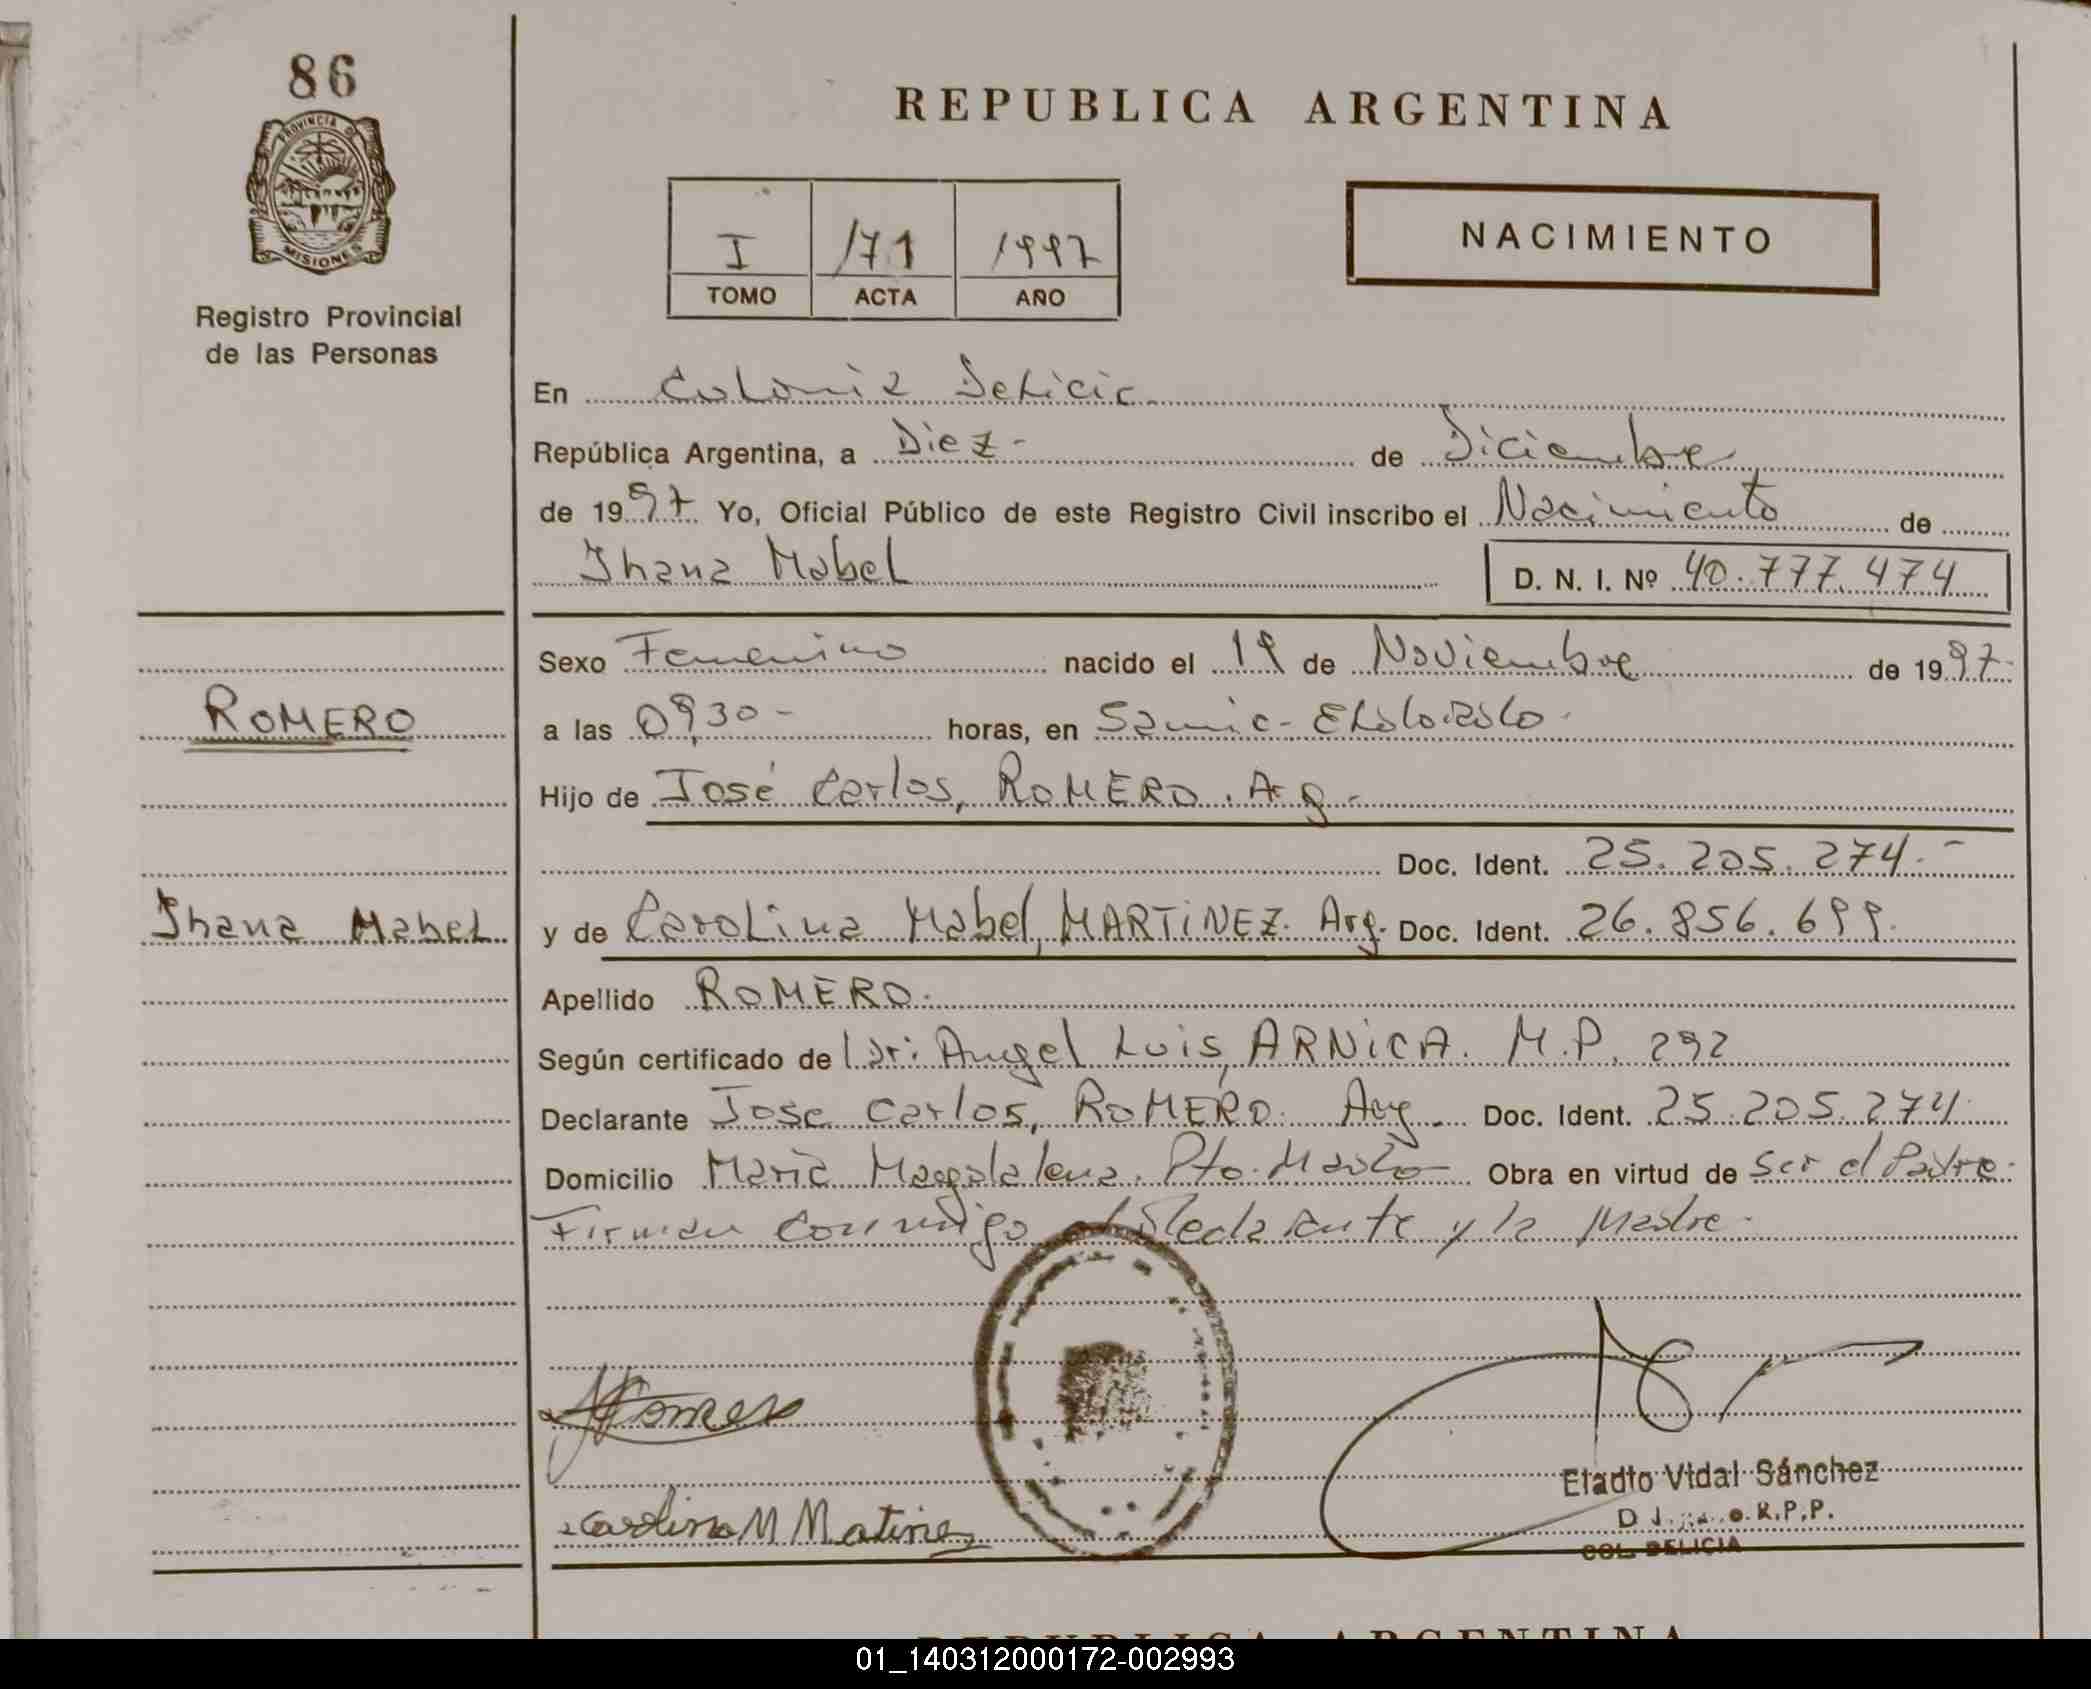 86
PROVINCIA DE
MISIONES
Registro Provincial
de las Personas
ROMERO
Jhana Mabel
REPUBLICA ARGENTINA
I 171 1997
TOMO ACTA AÑO
NACIMIENTO
En Colonia Delicia
República Argentina, a Diez - de Diciembre
de 1997 Yo, Oficial Público de este Registro Civil inscribo el Nacimiento de
Jhana Mabel D. N. I. Nº 40.777.474
Sexo Femenino nacido el 19 de Noviembre de 1997.
a las 09,30 - horas, en Samic - Eldorado.
Hijo de José Carlos, ROMERO. Arg -
Doc. Ident. 25.205.274.-
y de Carolina Mabel, MARTINEZ. Arg. Doc. Ident. 26.856.699.
Apellido ROMERO.
Según certificado de Dr: Angel Luis, ARNICA. M.P. 292
Declarante Jose Carlos, ROMERO. Arg. Doc. Ident. 25.205.274
Domicilio Maria Magdalena. Pto. Mado Obra en virtud de ser el Padre.
Firman conmigo el declarante y la Madre.
Carolina M Matines
Eladio Vidal Sánchez
R.P.P.
COL. DELICIA
REPUBLICA ARGENTINA
01_140312000172-002993